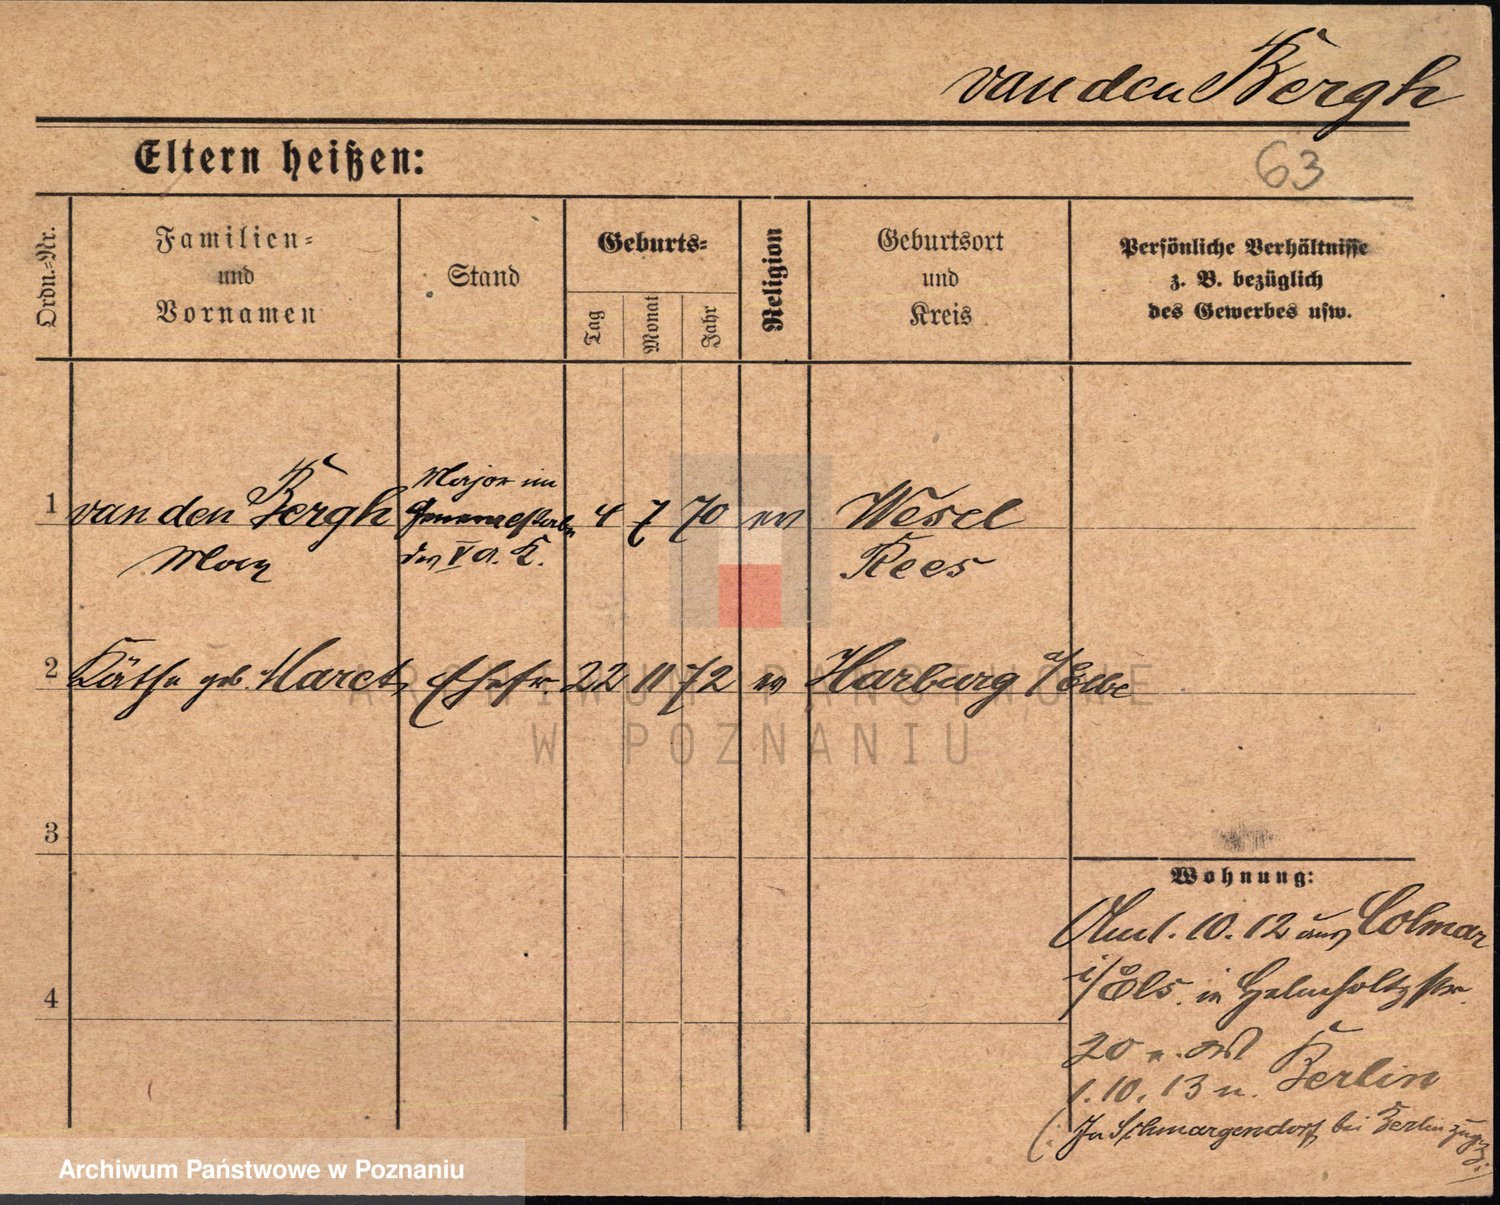 van den Bergh
Eltern heißen:
63
Ordn.-Nr.
Familien-
und
Vornamen
Stand
Geburts-
Tag
Monat
Jahr
Religion
Geburtsort
und
Kreis
Persönliche Verhältnisse
z. B. bezüglich
des Gewerbes usw.
1 van den Bergh Major im Generalstabe 4 7 70 ev Wesel
Max des V A. K. Rees
2 Käthe geb. Marcks Ehefr. 22 11 72 ev Harburg a/Elbe
3
4
Wohnung:
Am 1. 10. 12 aus Colmar
i/Els. in Helmholtzstr.
20
1. 10. 13 n. Berlin
(: In Schmargendorf bei Berlin zugez. :)
ARCHIWUM PAŃSTWOWE
W POZNANIU
Archiwum Państwowe w Poznaniu